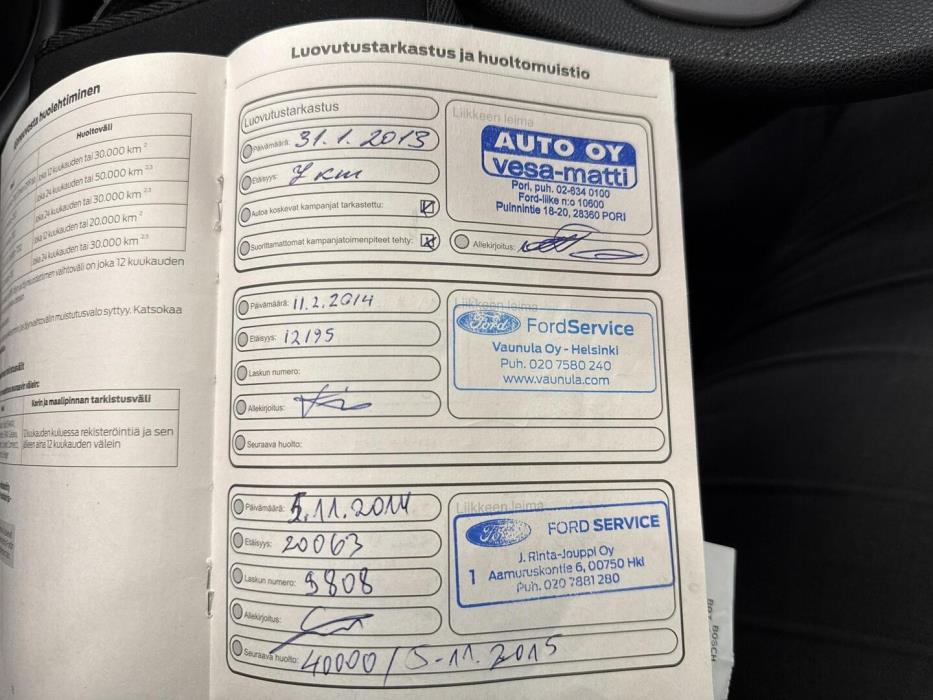 huolehtiminen
Huoltoväli
joka 12 kuukauden tai 30.000 km 2
joka 24 kuukauden tai 50.000 km 2,3
joka 24 kuukauden tai 30.000 km 2,3
joka 12 kuukauden tai 20.000 km 2
joka 24 kuukauden tai 30.000 km 2,3
vaihtoväli on joka 12 kuukauden
muistutusvalo syttyy. Katsokaa
Korin ja maalipinnan tarkistusväli
12 kuukauden kuluessa rekisteröintiä ja sen
jälkeen aina 12 kuukauden välein
Luovutustarkastus ja huoltomuistio
Luovutustarkastus
Päivämäärä: 31.1.2013
Etäisyys: 7 km
Autoa koskevat kampanjat tarkastettu:
Suorittamattomat kampanjatoimenpiteet tehty:
Liikkeen leima
AUTO OY
vesa-matti
Pori, puh. 02-634 0100
Ford-liike n:o 10600
Puinnintie 18-20, 28360 PORI
Allekirjoitus:
Päivämäärä: 11.2.2014
Etäisyys: 12195
Laskun numero:
Allekirjoitus:
Seuraava huolto:
Liikkeen leima
Ford FordService
Vaunula Oy - Helsinki
Puh. 020 7580 240
www.vaunula.com
Päivämäärä: 5.11.2014
Etäisyys: 20063
Laskun numero: 9808
Allekirjoitus:
Seuraava huolto: 40000 / 5-11. 2015
Liikkeen leima
Ford FORD SERVICE
J. Rinta-Jouppi Oy
1 Aamuruskontie 6, 00750 Hki
Puh. 020 7881 280
BOSCH